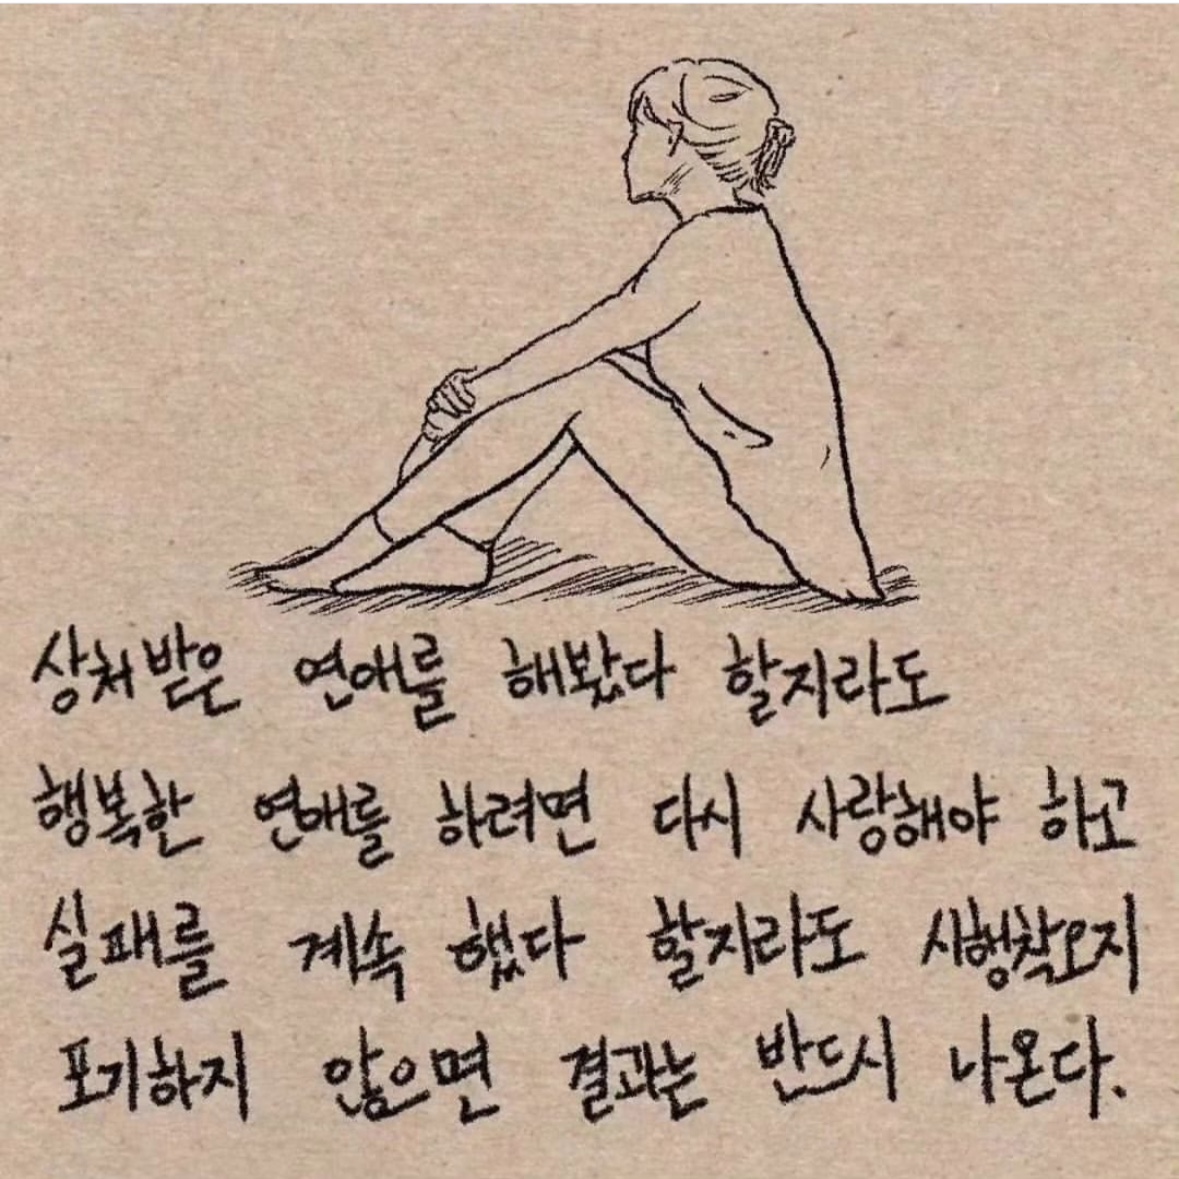 상처받은 연애를 해봤다 할지라도
행복한 연애를 하려면 다시 사랑해야 하고
실패를 계속 했다 할지라도 시행착오지
포기하지 않으면 결과는 반드시 나온다.